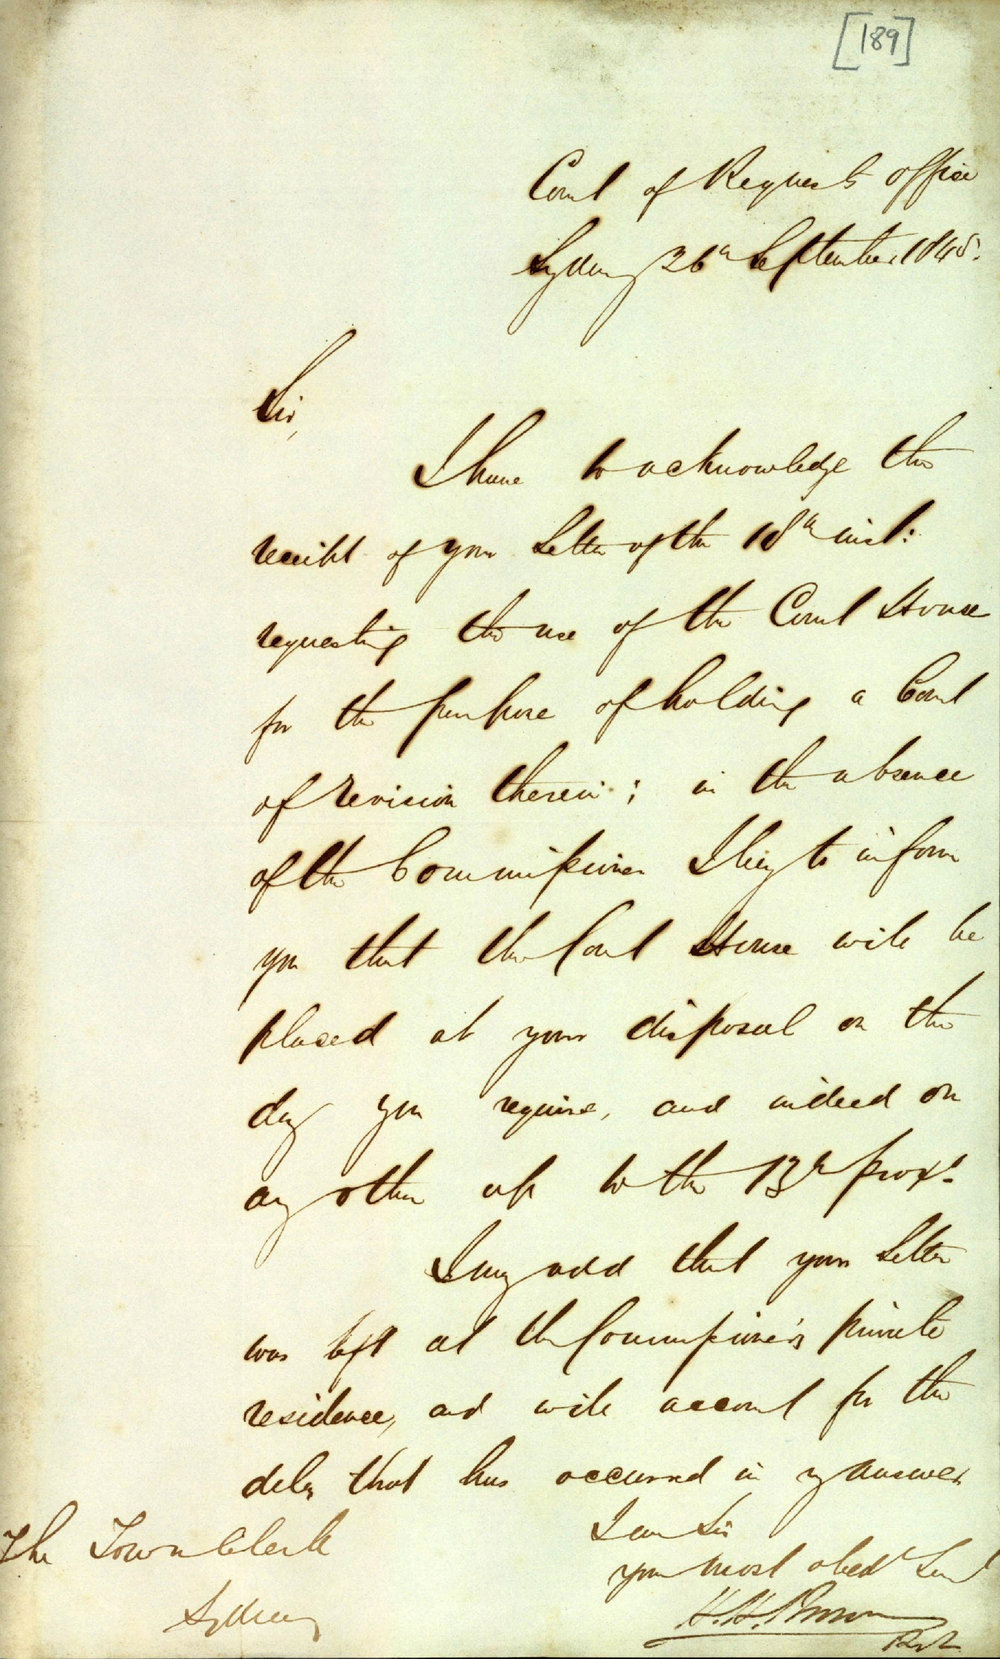 [189]
Court of Requests Office
Sydney 26th September 1845.
Sir,
I have to acknowledge the
receipt of your Letter of the 18th inst:
requesting the use of the Court House
for the purpose of holding a Court
of revision therein; in the absence
of the Commissioner I beg to inform
you that the Court House will be
placed at your disposal on the
day you require, and indeed on
any other up to the 13th proxt.
I may add that your Letter
was left at the Commissioner's private
residence, and will account for the
delay that has occurred in my answer
I am Sir
your most obedt Servt
H. H. Browne
The Town Clerk
Sydney